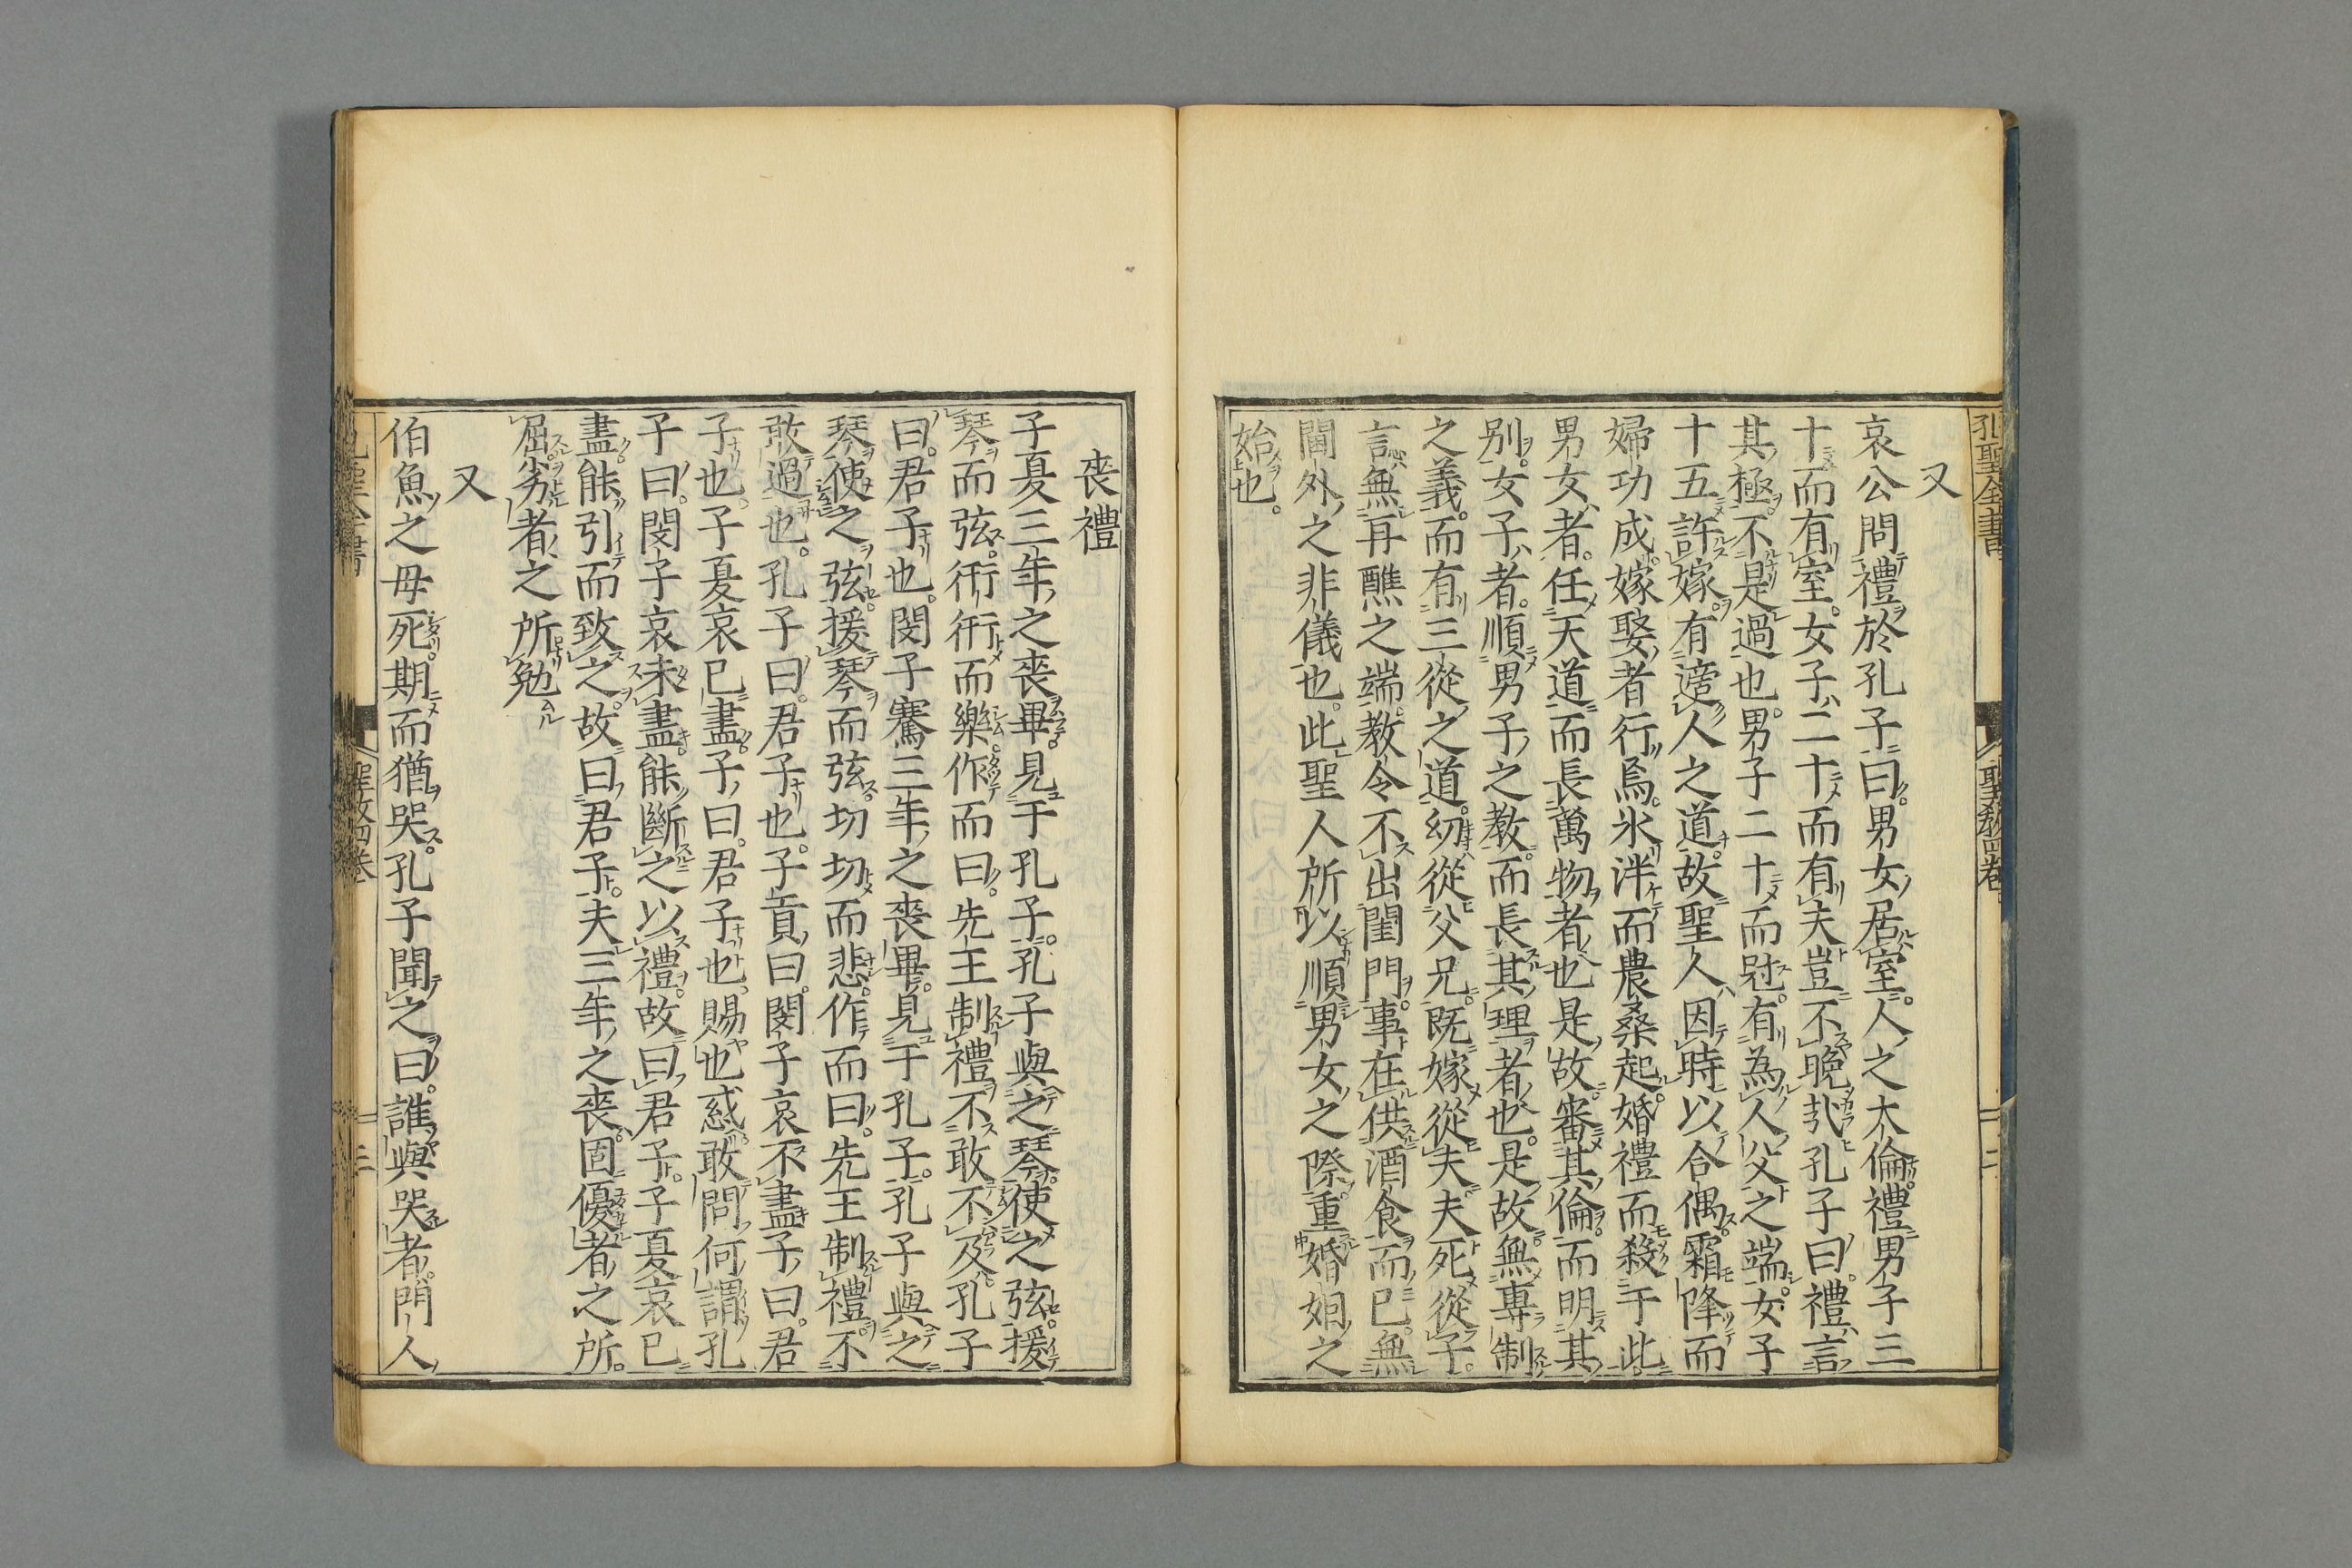 孔聖全書
聖教四卷
二
又
哀公問禮於孔子曰男女居室人之大倫禮男子三
十而有室女子二十而有夫豈不晚㢤孔子曰禮言
其極不是過也男子二十而冠有為人父之端女子
十五許嫁有適人之道故聖人因時以合偶霜降而
婦功成嫁娶者行焉氷泮而農桑起婚禮而殺于此
男女者任天道而長萬物者也是故審其倫而明其
别女子者順男子之教而長其理者也是故無專制
之義而有三從之道幼從父兄既嫁從夫夫死從子
言無再醮之端教令不出閨門事在供酒食而已無
閫外之非儀也此聖人所以順男女之際重婚姻之
始也
喪禮
子夏三年之喪畢見于孔子孔子與之琴使之弦援
琴而弦衎衎而樂作而曰先王制禮不敢不及孔子
曰君子也閔子騫三年之喪畢見于孔子孔子與之
琴使之弦援琴而弦切切而悲作而曰先王制禮不
敢過也孔子曰君子也子貢曰閔子哀不盡子曰君
子也子夏哀已盡子曰君子也賜也惑敢問何謂孔
子曰閔子哀未盡能斷之以禮故曰君子子夏哀已
盡能引而致之故曰君子夫三年之喪固優者之所
屈劣者之所勉
又
伯魚之母死期而猶哭孔子聞之曰誰與哭者門人
聖教四卷
三